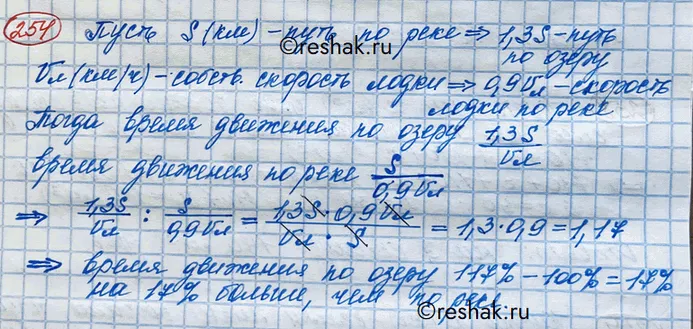 254 Пусть S (км) – путь по реке ⇒ 1,3S – путь
по озеру
©reshak.ru
Vл (км/ч) – собств. скорость лодки ⇒ 0,9Vл – скорость
лодки по реке
Тогда время движения по озеру 1,3S/Vл
время движения по реке S/0,9Vл
⇒ 1,3S/Vл : S/0,9Vл = 1,3S · 0,9Vл/Vл · S = 1,3·0,9 = 1,17
⇒ время движения по озеру 117% – 100% = 17%
на 17% больше, чем по реке.
©reshak.ru